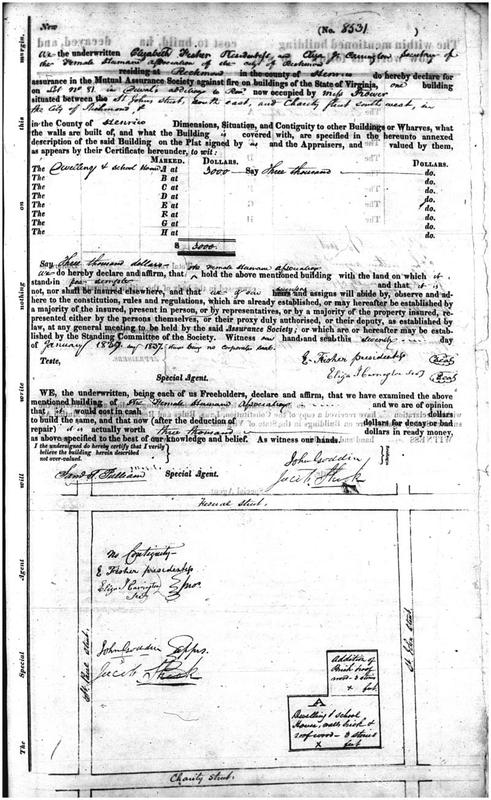 New (No. 8531.)
We the underwritten Elizabeth Fisher Presidentess and Eliza J. Carrington Secretary of
the Female Humane Association of the city of Richmond
residing at Richmond in the county of Henrico do hereby declare for
assurance in the Mutual Assurance Society against fire on buildings of the State of Virginia, one building
on Lot No 81 in addition to now occupied by Miss
situated between the St Johns street, north east, and Charity street south west, in
the City of Richmond
in the County of Henrico Dimensions, Sitation, and Contiguity to other Buildings or Wharves, what
the walls are built of, and what the Building is covered with, are specified in the hereunto annexed
description of the said Building on the Plat signed by us and the Appraisers, and valued by them,
as appears by their Certificate hereunder, to wit:
MARKED. DOLLARS. DOLLARS.
The Dwelling & school House A at 3000 Say Three thousand do.
The B at do.
The C at do.
The D at do.
The E at do.
The F at do.
The G at do.
The H at do.
$ 3000
Say Three thousand dollars
the Female Humane Association
We do hereby declare and affirm, that hold the above mentioned building with the land on which it
stand in fee simple and that it is
not, nor shall be insured elsewhere, and that and assigns will abide by, observe and ad-
here to the constitution, rules and regulations, which are already established, or may hereafter be established by
a majority of the insured, present in person, or by representatives, or by a majority of the property insured, re-
presented either by the persons themselves, or their proxy duly authorised, or their deputy, as established by
law, at any general meeting to be held by the said Assurance Society; or which are or hereafter may be estab-
lished by the Standing Committee of the Society. Witness our hand and seal this day
of January 1837 there being no corporate seal.
Teste, E Fisher presidentess (Seal)
Special Agent. Eliza J Carrington Secy (Seal)
WE, the underwritten, being each of us Freeholders, declare and affirm, that we have examined the above
mentioned building of the Female Humane Association and we are of opinion
that it would cost in cash dollars
to build the same, and that now (after the deduction of dollars for decay or bad
repair) it is actually worth Three thousand dollars in ready money,
as above specified to the best of our knowledge and belief. As witness our hands.
I the undersigned do hereby certify that I verily
believe the building herein described
not over-valued.
John Goddin
Jacob Shook
Special Agent.
Federal street.
No Contiguity
E Fisher presidentess
Eliza J Carrington
Secy
John Goddin Apprs.
Jacob Shook
St. Paul street.
St. John street.
Addition of
Brick roof
wood 3 stories
feet
A
Dwelling & school
House, walls brick &
roof wood 3 stories
X feet
Charity street.
The Special Agent will write nothing on this margin.